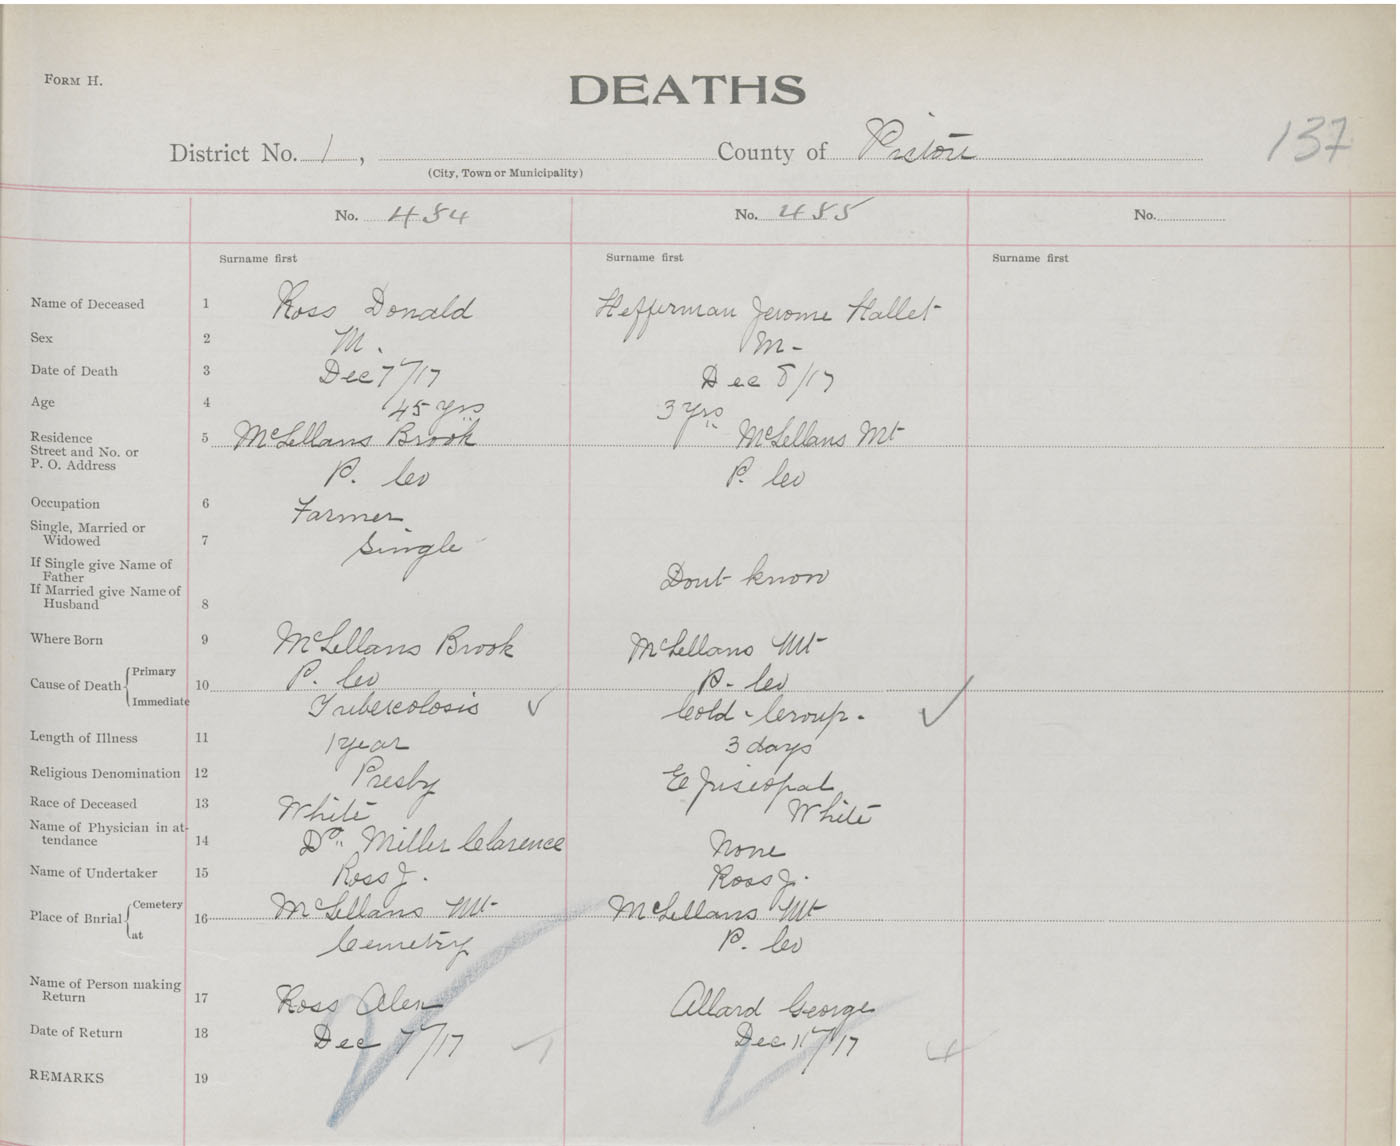 FORM H.
DEATHS
137
District No. 1, County of Pictou
(City, Town or Municipality)
No. 484 No. 485 No.
Surname first Surname first Surname first
Name of Deceased 1 Ross Donald Hefferman Jerome Hallet
Sex 2 M. M-
Date of Death 3 Dec 7/17 Dec 8/17
Age 4 45 yrs 3 yrs
Residence Street and No. or P. O. Address 5 McLellans Brook McLellans Mt
P. Co P. Co
Occupation 6 Farmer
Single, Married or Widowed 7 Single
If Single give Name of Father Dont know
If Married give Name of Husband 8
Where Born 9 McLellans Brook McLellans Mt
Cause of Death Primary 10 P. Co P. Co
Immediate Tubercolosis Cold - Croup.
Length of Illness 11 1 year 3 days
Religious Denomination 12 Presby Episcopal
Race of Deceased 13 White White
Name of Physician in attendance 14 Dr. Miller Clarence None
Name of Undertaker 15 Ross J. Ross J.
Place of Bnrial Cemetery 16 McLellans Mt McLellans Mt
at Cemetry P. Co
Name of Person making Return 17 Ross Alex Allard George
Date of Return 18 Dec 7/17 Dec 11/17
REMARKS 19